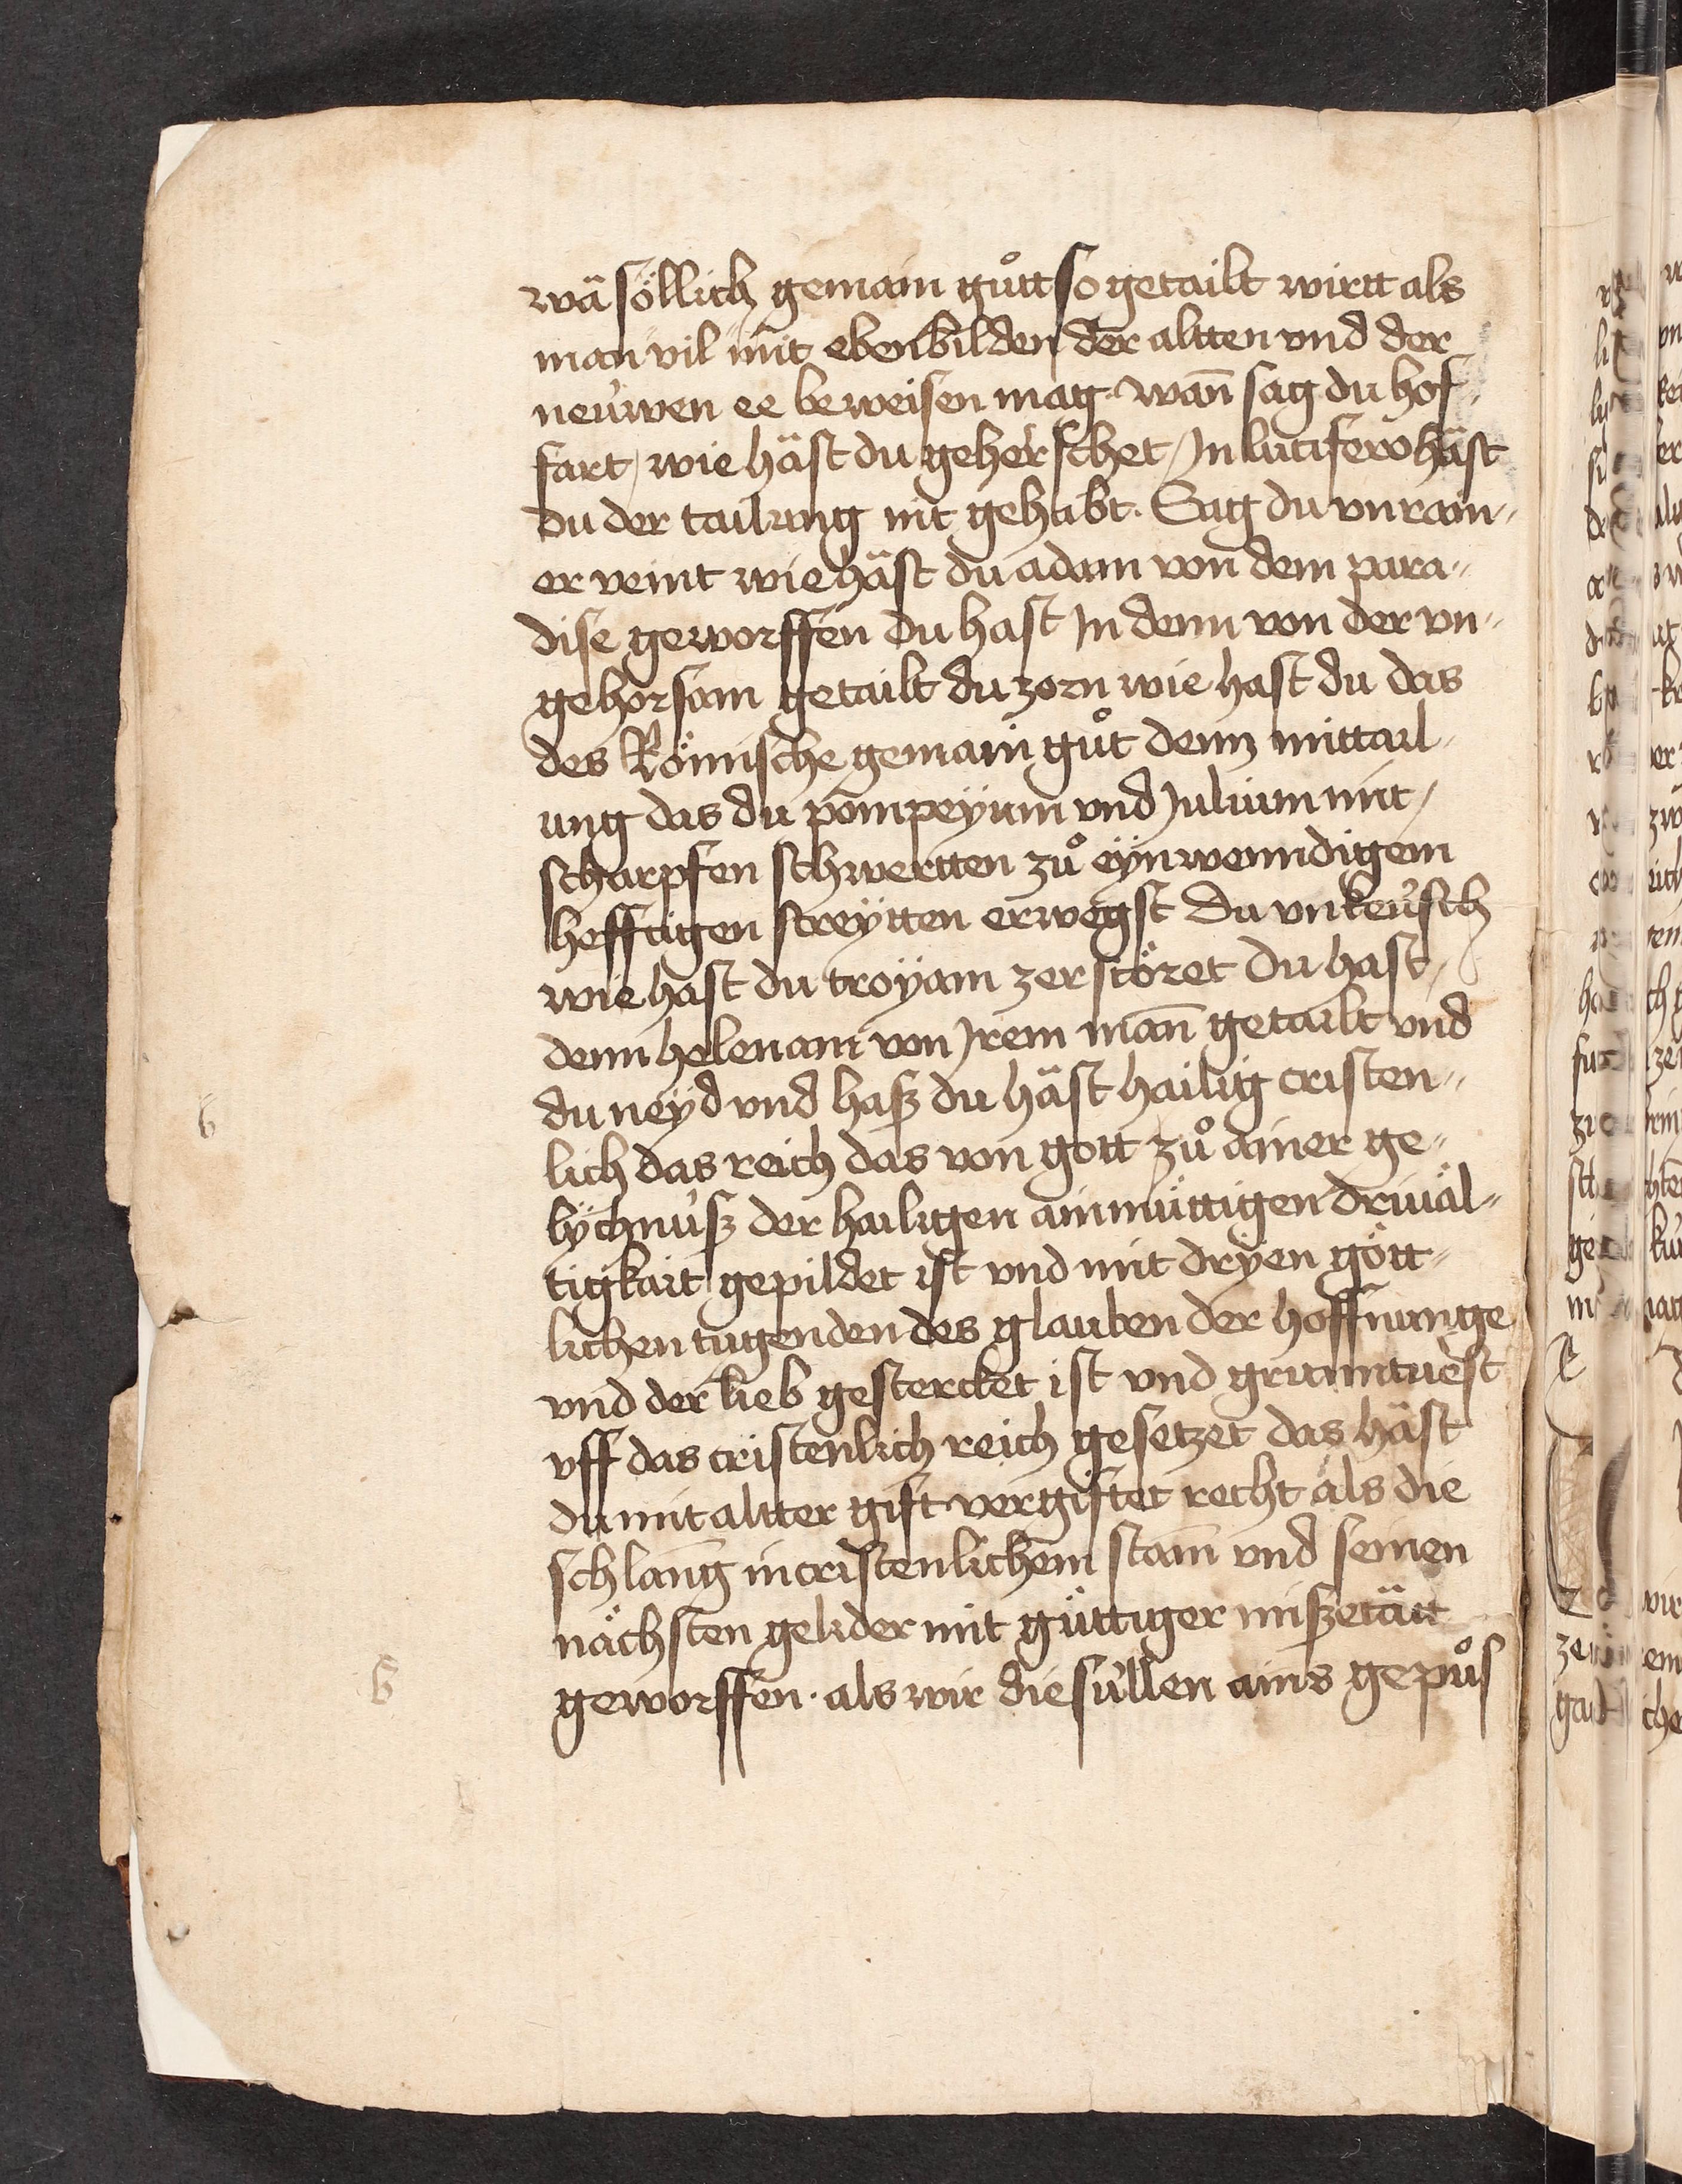 wä söllich gemain gůtt so getailt wirtt als
man vil mit ebenbilden der altten vnd der
neuwen ee beweisen mag. wañ sag du hof
fart / wie häst du geherschet / In lucifero häst
du der tailung nit gehabt. Sag du vnrain„
er veint wie häst du adam von dem para„
dise geworffen Du hast In denn von der vn„
gehorsam getailt du zorn wie hast du das
des Römische gemain gůt denn mittail„
ung das du pompeyum vnd Julium mit /
scharpfen schwertten zů eynwenndigem
hefftigen streytten erwegst Du vnkeusch
wie hast du troyam zerstöret Du hast /
denn helenam von Jrem mañ getailt vnd
du neyd vnd hasz du häst hailig cristen„
lich das reich das von gott zů ainer ge„
lychnusz der hailigen ainmüttigen driuäl„
tigkait gepildet ist vnd mit dryen gött„
lichen tugenden des glauben der hoffnunge
vnd der lieb gestercket ist vnd grunntuest
vff das cristenlich reich gesetzet das häst
du mit altter gift vergiftet recht als die
schlang in cristenlichem stam̄ vnd seinen
nächsten gelider mit güttiger miszetätt
geworffen. als wir die süllen ains gepůs